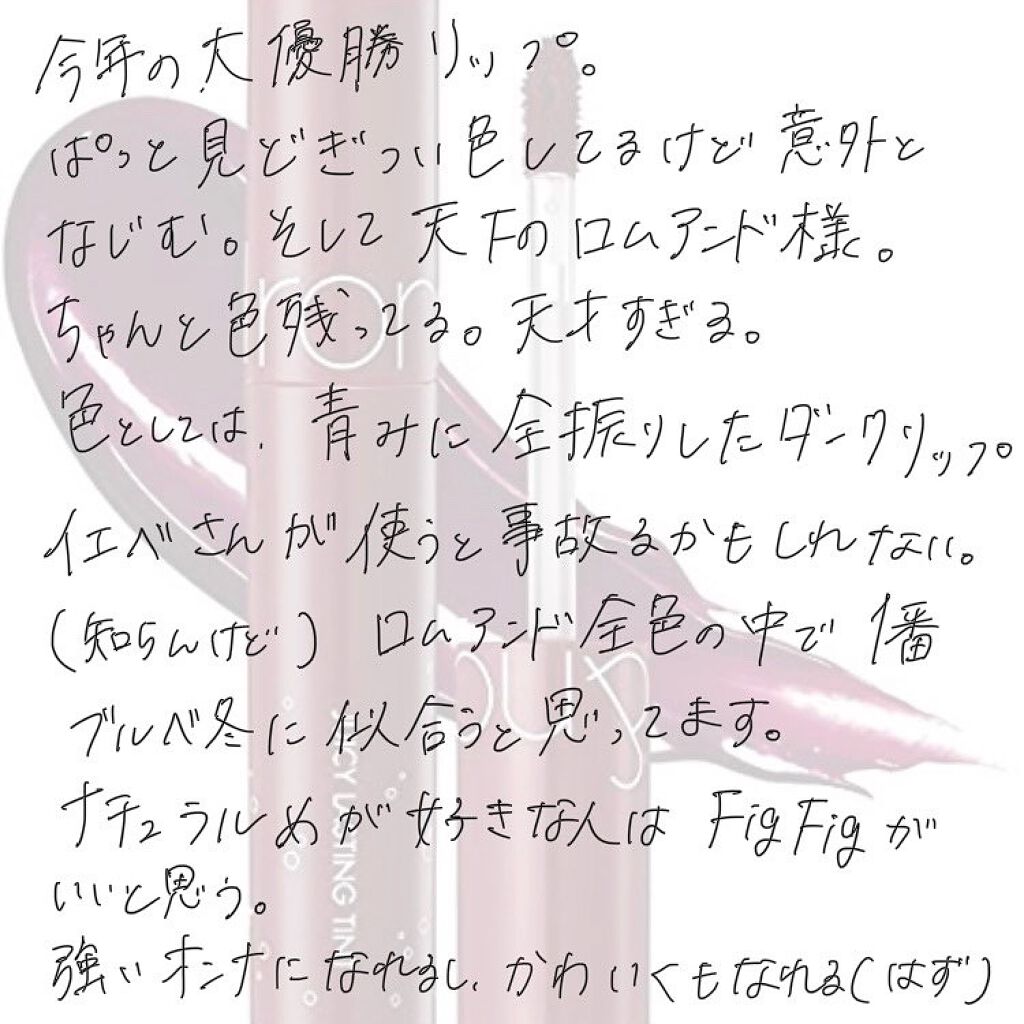 今年の大優勝リップ。
ぱっと見どぎつい色してるけど意外と
なじむ。そして天下のロムアンド様。
ちゃんと色残ってる。天才すぎる。
色としては、青みに全振りしたダークリップ。
イエベさんが使うと事故るかもしれない。
(知らんけど) ロムアンド全色の中で1番
ブルベ冬に似合うと思ってます。
ナチュラルめが好きな人はFigFigが
いいと思う。
強いオンナになれるし、かわいくもなれる(はず)
rom
JUICY LASTING TINT